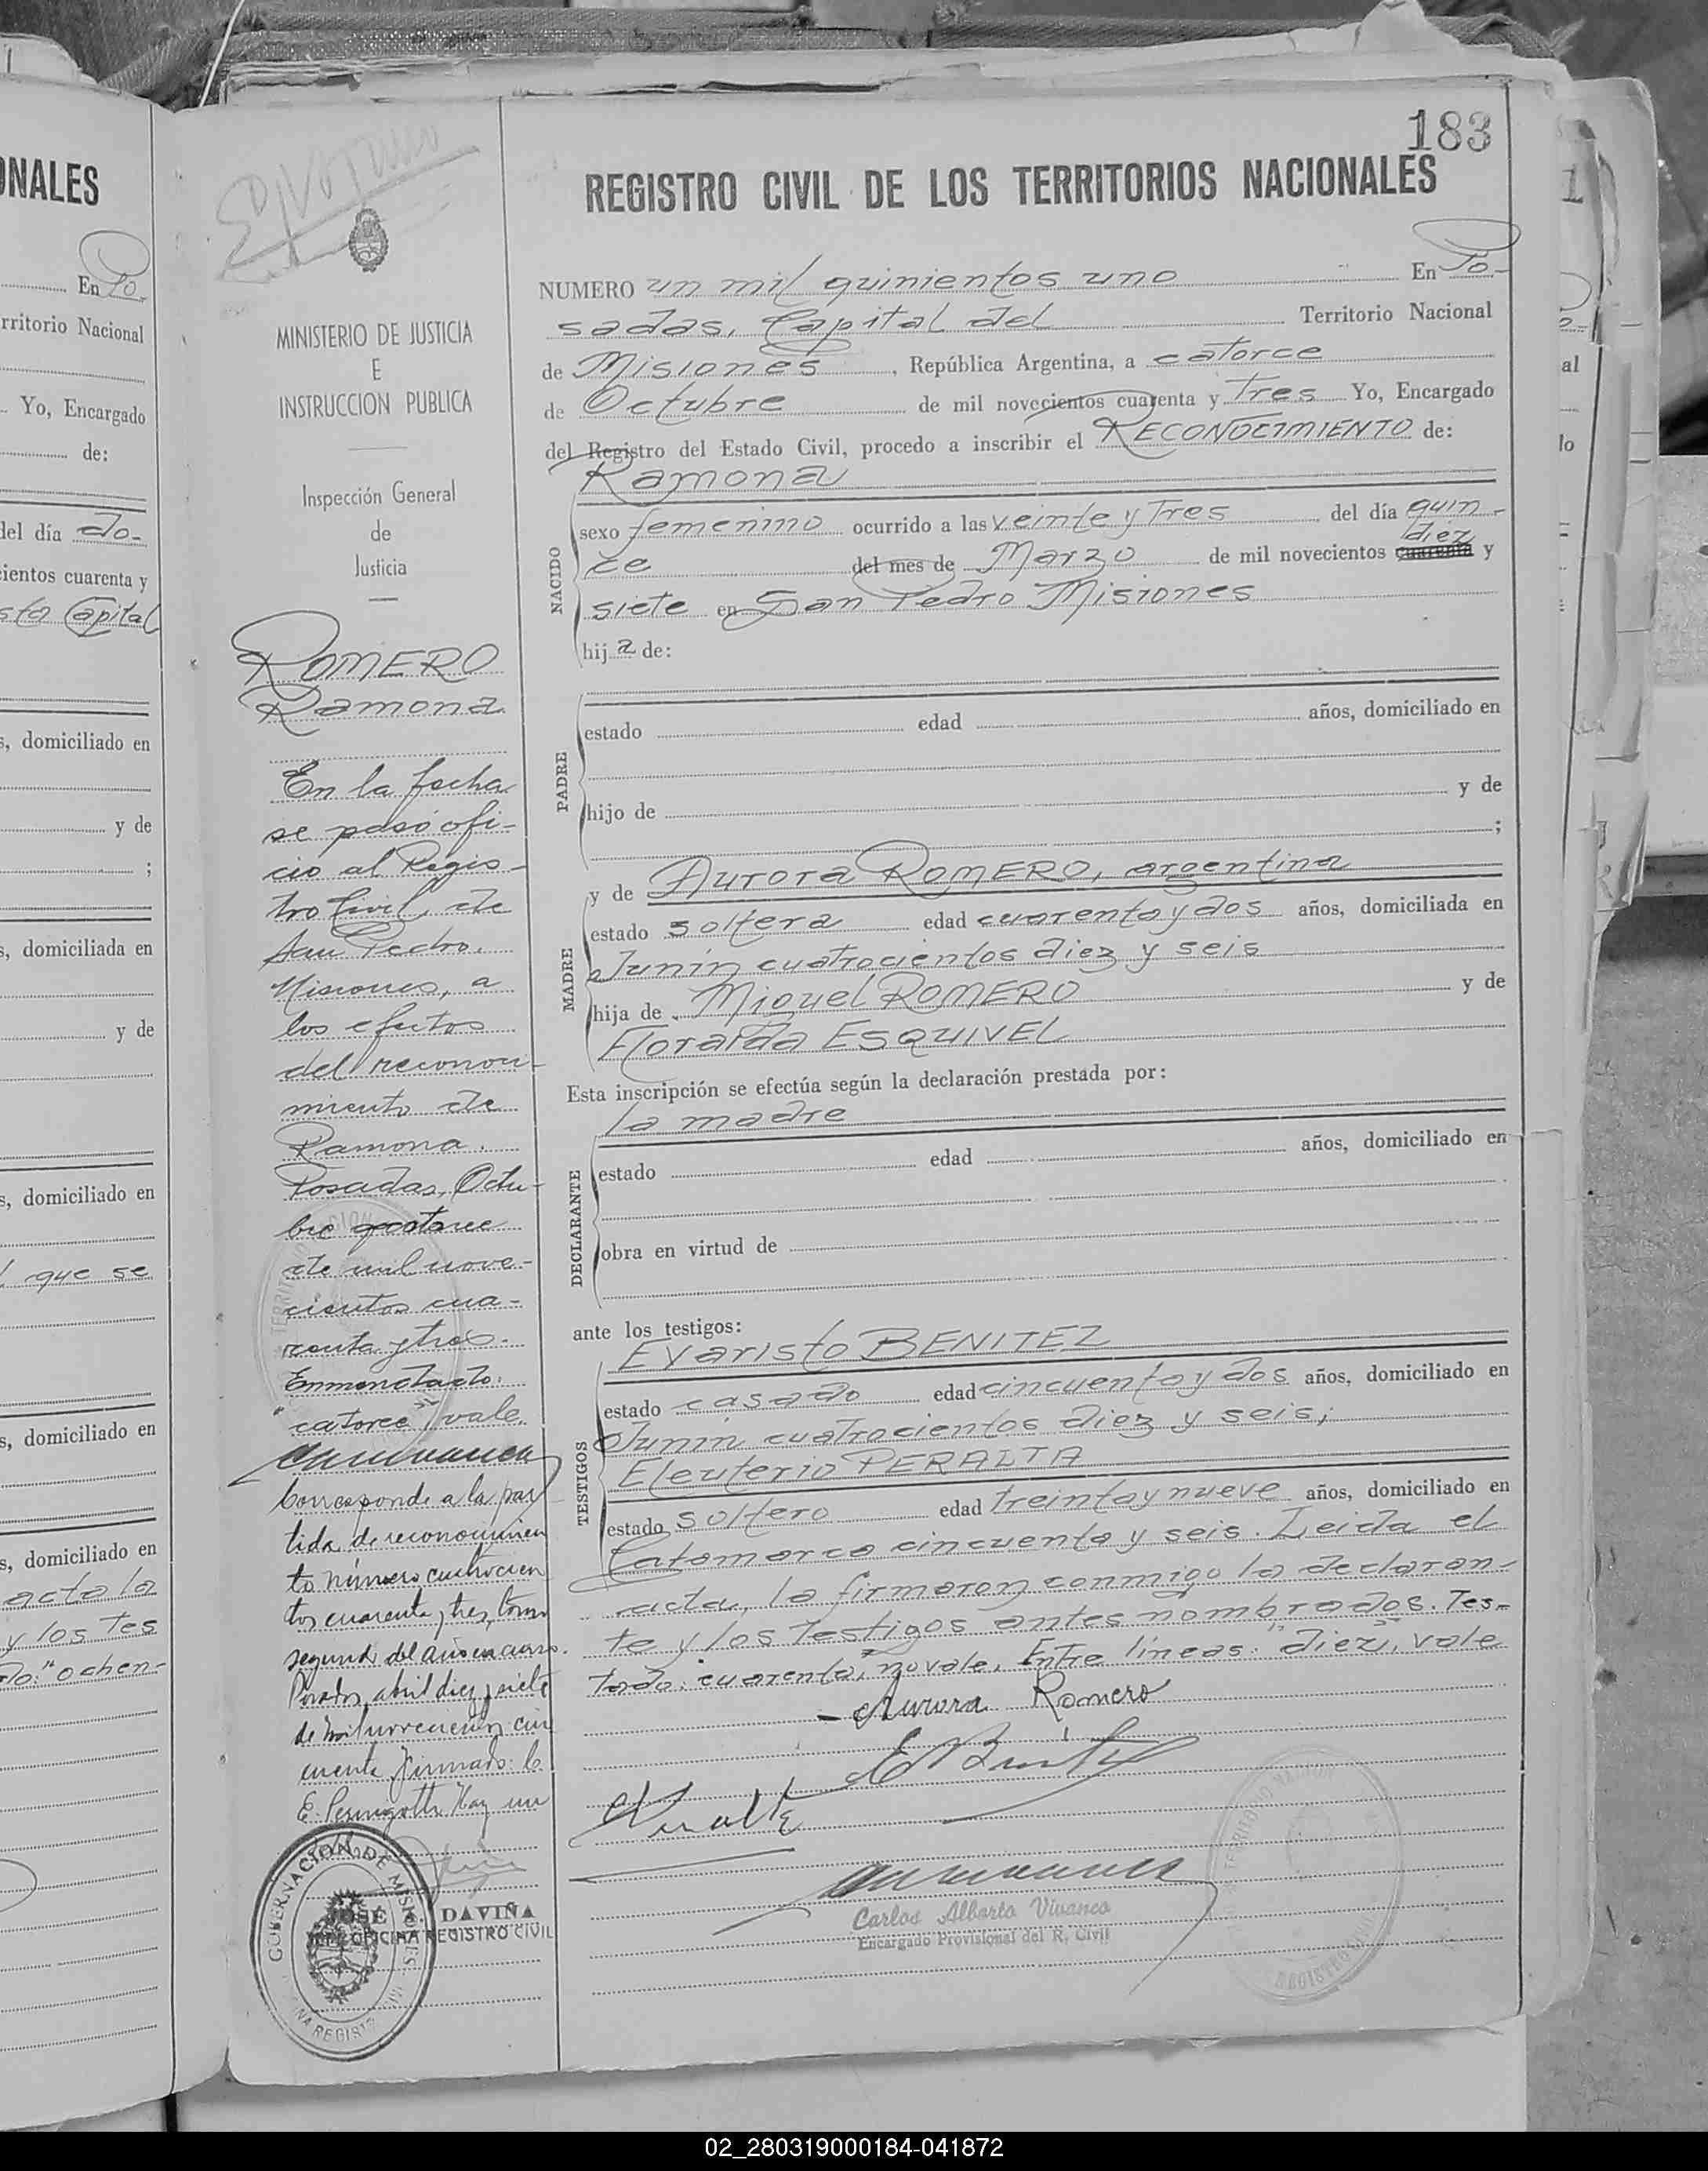 ONALES
En Po-
rritorio Nacional
Yo, Encargado
de:
del día do-
cientos cuarenta y
sta Capital
s, domiciliado en
y de
;
s, domiciliada en
y de
s, domiciliado en
que se
s, domiciliado en
s, domiciliado en
acta la
y los Tes
do: "ochen-
MINISTERIO DE JUSTICIA
E
INSTRUCCION PUBLICA
Inspección General
de
Justicia
ROMERO
Ramona
En la fecha
se pasó ofi-
cio al Regis-
tro Civil de
San Pedro,
Misiones, a
los efectos
del reconoci-
miento de
Ramona.
Posadas, Octu-
bre catorce
de mil nove-
cientos cua-
renta y tres.
Enmendado:
"catorce" vale.
Corresponde a la par
tida de reconocimien
to número cuatrocien
tos cuarenta y tres, tomo
segundo del año en curso.
Posadas, abril diez y siete
de mil novecientos cin
cuenta. Firmado: C.
E. Hay un
GOBERNACION DE MISIONES
JOSÉ A. DAVIÑA
JEFE OFICINA REGISTRO CIVIL
183
REGISTRO CIVIL DE LOS TERRITORIOS NACIONALES
NUMERO un mil quinientos uno En Po-
sadas, Capital del Territorio Nacional
de Misiones, República Argentina, a catorce
de Octubre de mil novecientos cuarenta y Tres Yo, Encargado
del Registro del Estado Civil, procedo a inscribir el RECONOCIMIENTO de:
Ramona
NACIDO
sexo femenino ocurrido a las veinte y Tres del día quin-
diez
ce del mes de Marzo de mil novecientos cuarenta y
siete en San Pedro Misiones
hija de:
PADRE
estado edad años, domiciliado en
hijo de y de
;
y de Aurora ROMERO, argentina
MADRE
estado soltera edad cuarenta y dos años, domiciliada en
Junín cuatrocientos diez y seis
hija de Miguel ROMERO y de
Floralda ESQUIVEL
Esta inscripción se efectúa según la declaración prestada por:
la madre
DECLARANTE
estado edad años, domiciliado en
obra en virtud de
ante los testigos:
Evaristo BENITEZ
TESTIGOS
estado casado edad cincuenta y dos años, domiciliado en
Junín cuatrocientos diez y seis;
Eleuterio PERALTA
estado soltero edad treinta y nueve años, domiciliado en
Catamarca cincuenta y seis. Leida el
acta, la firmaron conmigo la declaran-
te y los Testigos antes nombrados. Tes-
tado: cuarenta, no vale. Entre líneas: "diez", vale
Aurora Romero
Carlos Alberto Vivanco
Encargado Provisional del R. Civil
02_280319000184-041872